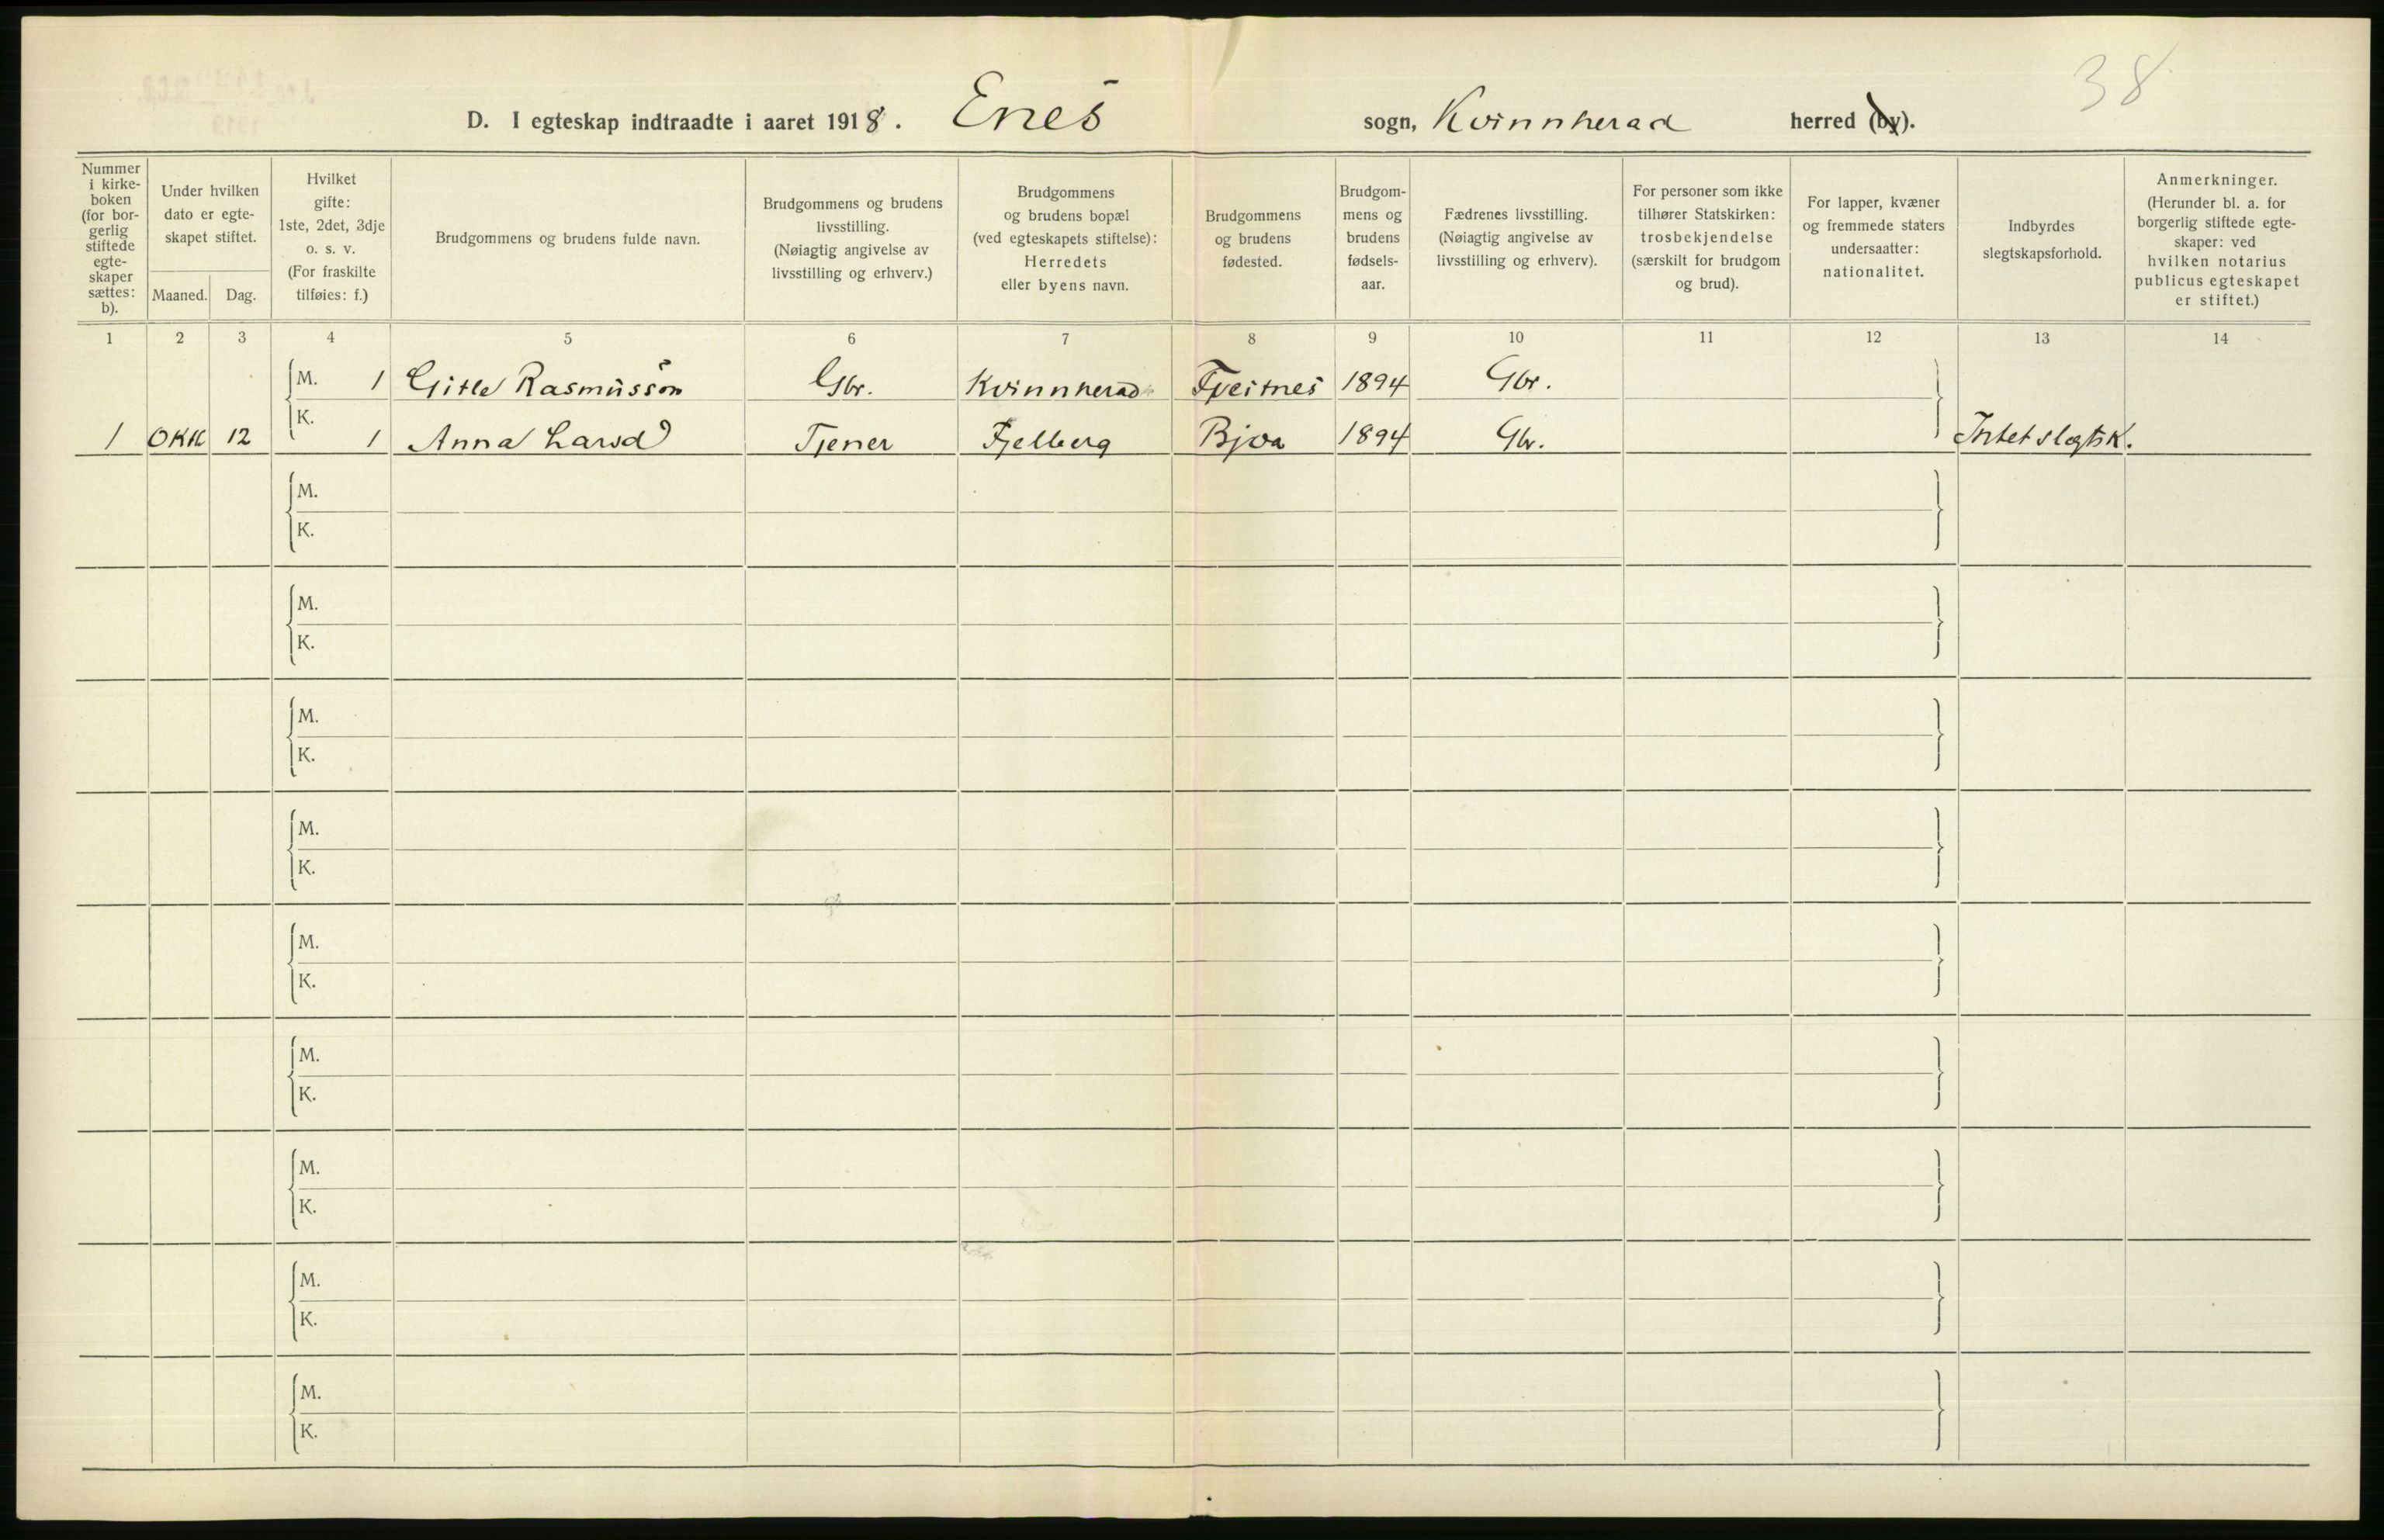 38
D. I egteskap indtraadte i aaret 1918. Enes sogn, Kvinnherad herred (by).
Nummer i kirkeboken (for borgerlig stiftede egteskaper sættes: b).
Under hvilken dato er egteskapet stiftet.
Maaned. Dag.
Hvilket gifte: 1ste, 2det, 3dje o. s. v. (For fraskilte tilføies: f.)
Brudgommens og brudens fulde navn.
Brudgommens og brudens livsstilling. (Nøiagtig angivelse av livsstilling og erhverv.)
Brudgommens og brudens bopæl (ved egteskapets stiftelse): Herredets eller byens navn.
Brudgommens og brudens fødested.
Brudgommens og brudens fødselsaar.
Fædrenes livsstilling. (Nøiagtig angivelse av livsstilling og erhverv).
For personer som ikke tilhører Statskirken: trosbekjendelse (særskilt for brudgom og brud).
For lapper, kvæner og fremmede staters undersaatter: nationalitet.
Indbyrdes slegtskapsforhold.
Anmerkninger. (Herunder bl. a. for borgerlig stiftede egteskaper: ved hvilken notarius publicus egteskapet er stiftet.)
1 2 3 4 5 6 7 8 9 10 11 12 13 14
M. 1 Gitle Rasmusson Gbr. Kvinnherad Tveitnes 1894 Gbr.
1 Okt 12 K. 1 Anna Larsd Tjener Fjelberg Bjoa 1894 Gbr. Intet slegtsk.
M.
K.
M.
K.
M.
K.
M.
K.
M.
K.
M.
K.
M.
K.
M.
K.
M.
K.